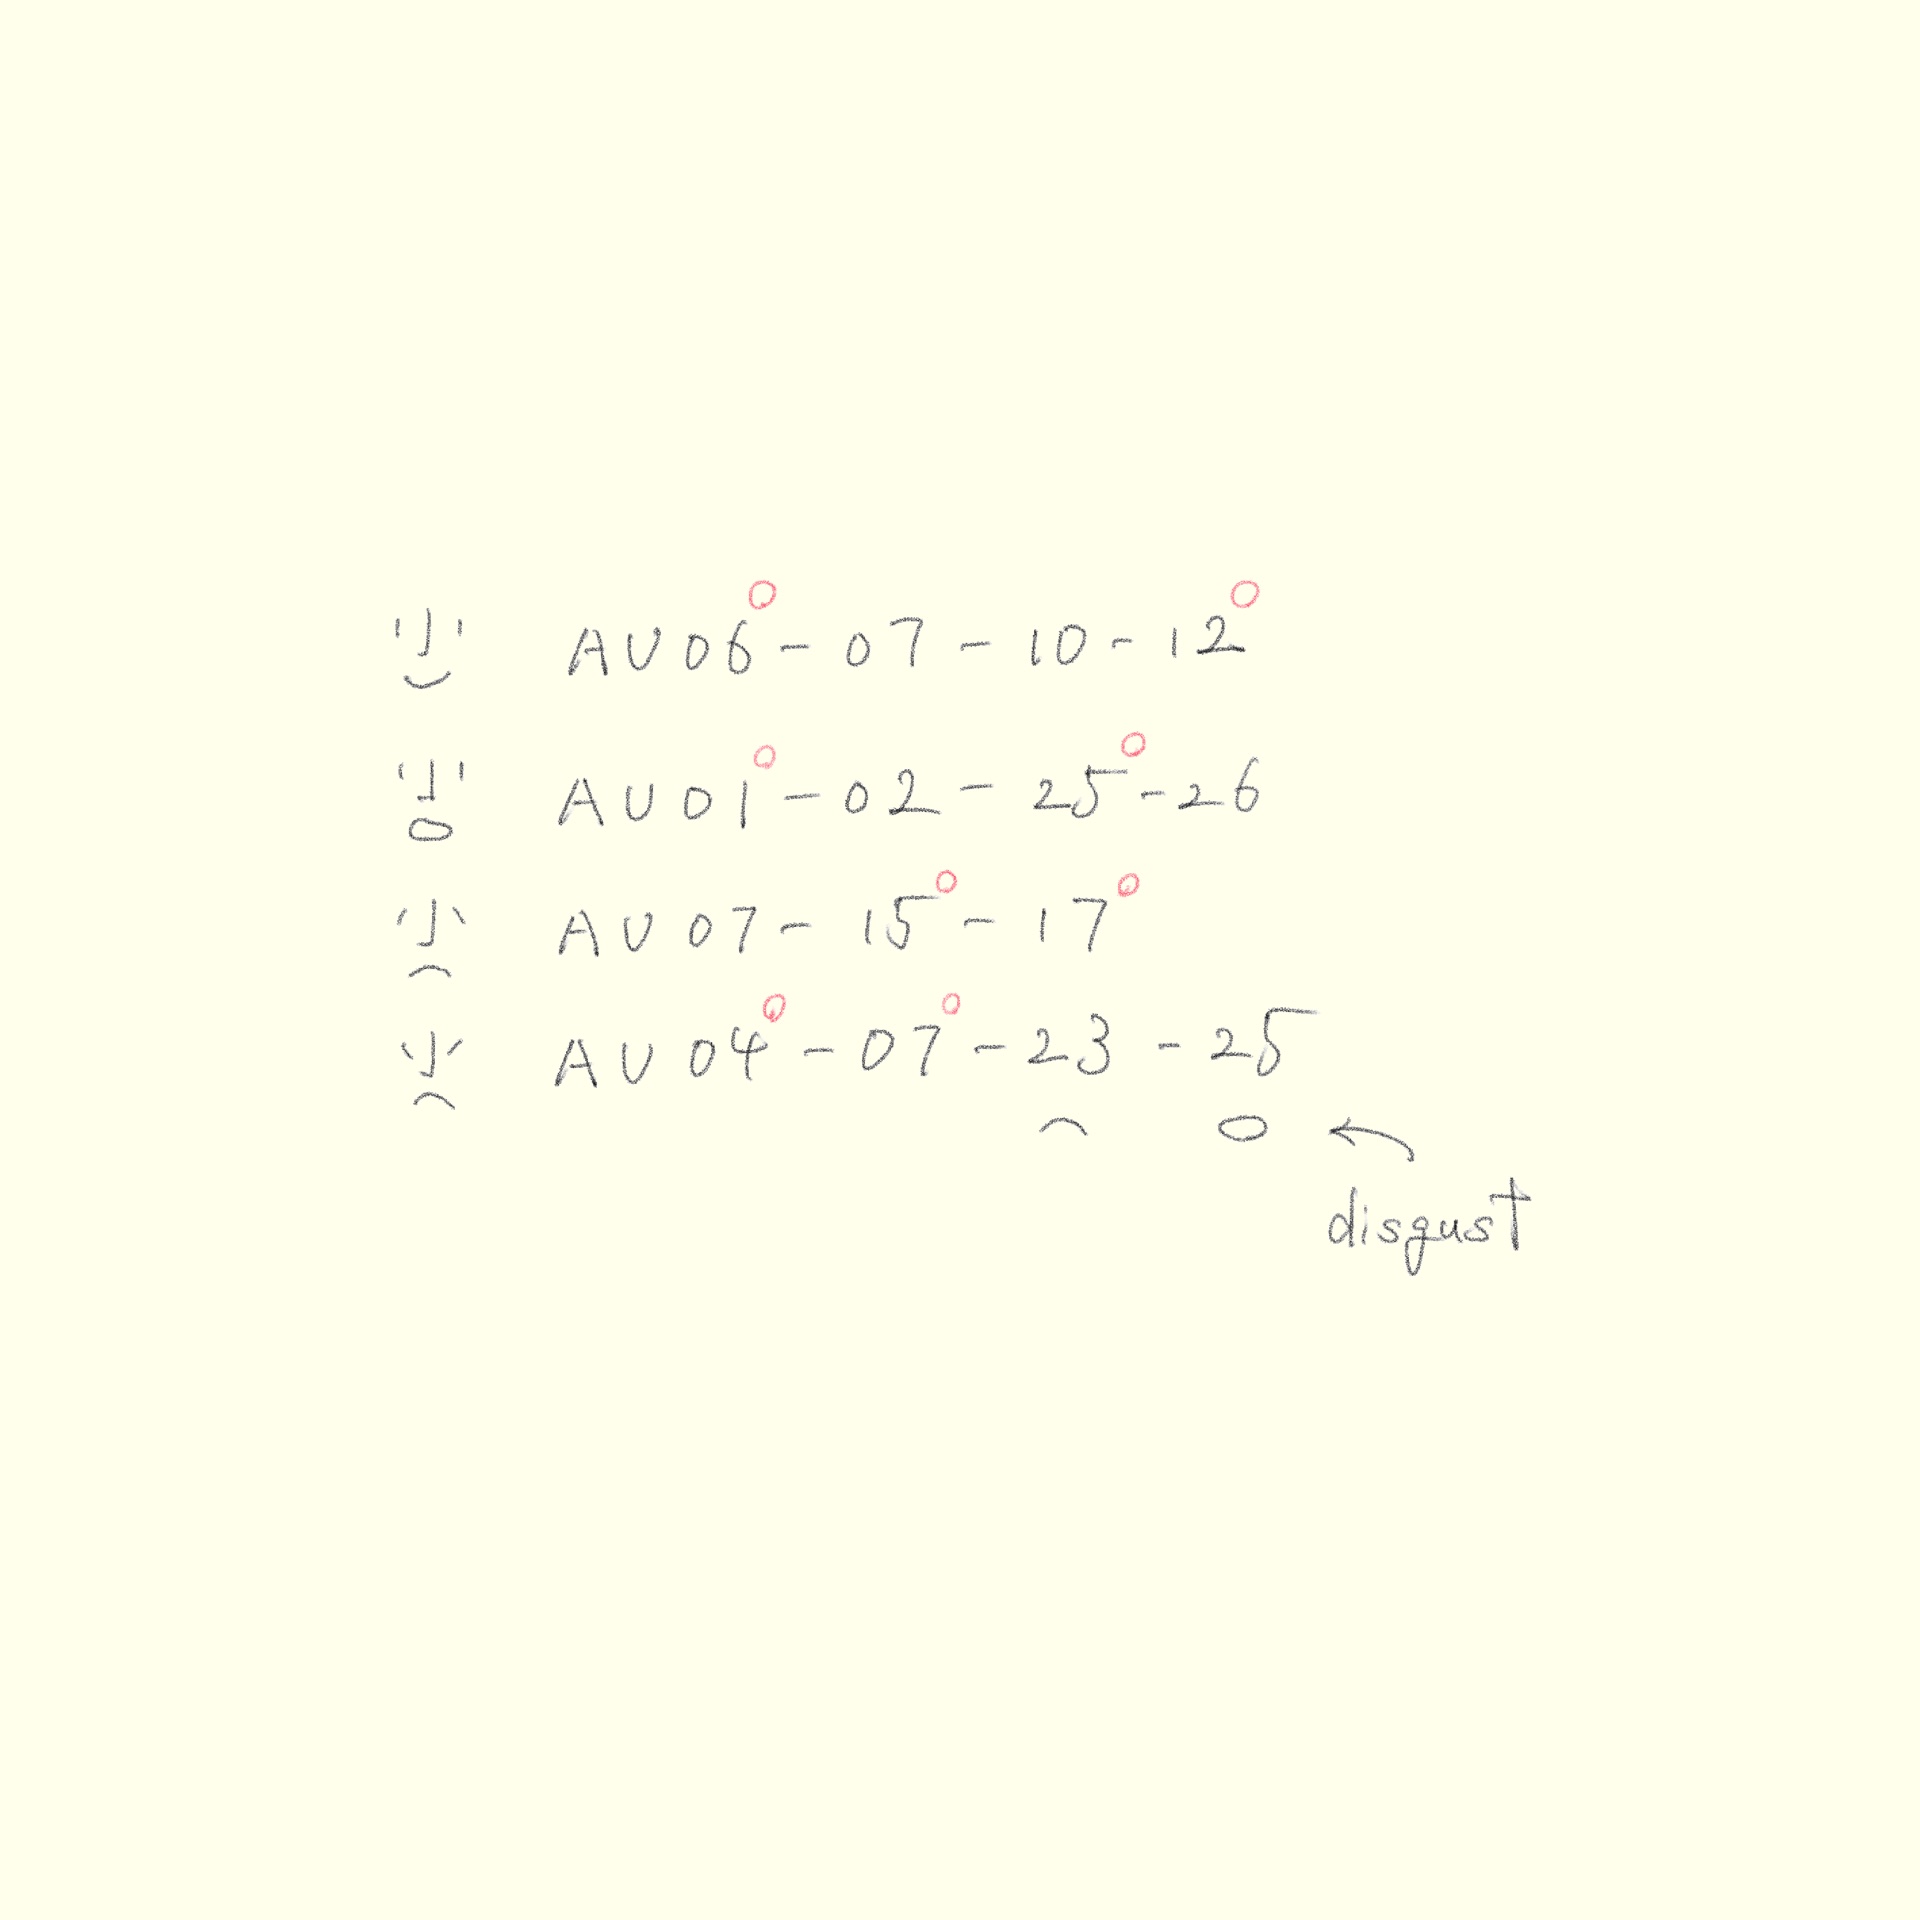 AU06-07-10-12
AU01-02-25-26
AU07-15-17
AU04-07-23-25
disgust